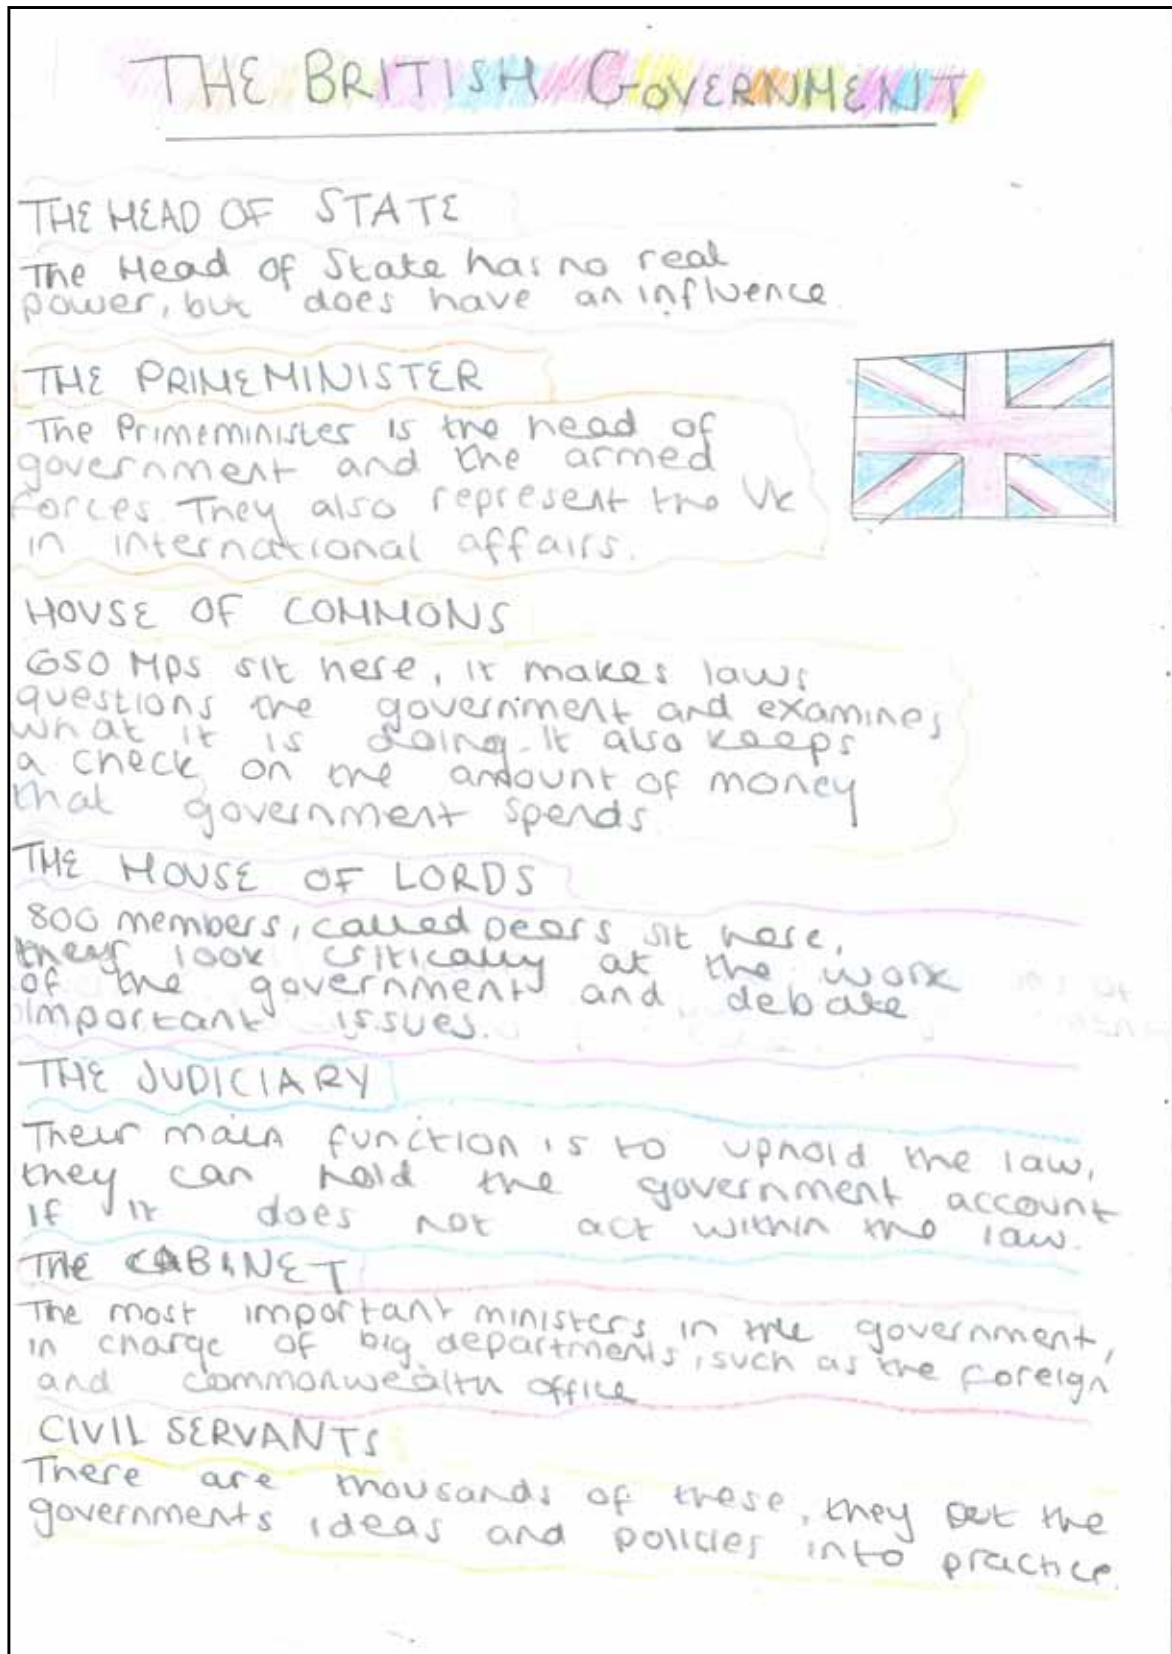 THE BRITISH GOVERNMENT
THE HEAD OF STATE
The Head of State has no real
power, but does have an influence.
THE PRIMEMINISTER
The Primeminister is the head of
government and the armed
forces. They also represent the UK
in international affairs.
HOUSE OF COMMONS
650 MPs sit here, it makes laws
questions the government and examines
what it is doing. It also keeps
a check on the amount of money
that government spends.
THE HOUSE OF LORDS
800 members, called peers sit here,
they look critically at the work
of the government and debate
important issues.
THE JUDICIARY
Their main function is to uphold the law,
they can hold the government account
if it does not act within the law.
THE CABINET
The most important ministers in the government,
in charge of big departments, such as the foreign
and commonwealth office
CIVIL SERVANTS
There are thousands of these, they put the
governments ideas and policies into practice.